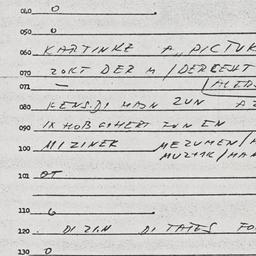 040 0
050 0
060 KARTINKE A "PICTUR
070 ZOKT DER M / DERCEHT
071 — (ALERS
080 KENS.DI MAN ZUN A Z
090 IX HOB GIHERT FUN EN
100 MIZINER MEZUMEN/M
MUZIIK/MAN
101 OT
110 6
120 DI ZIN DI TATES FO
130 0